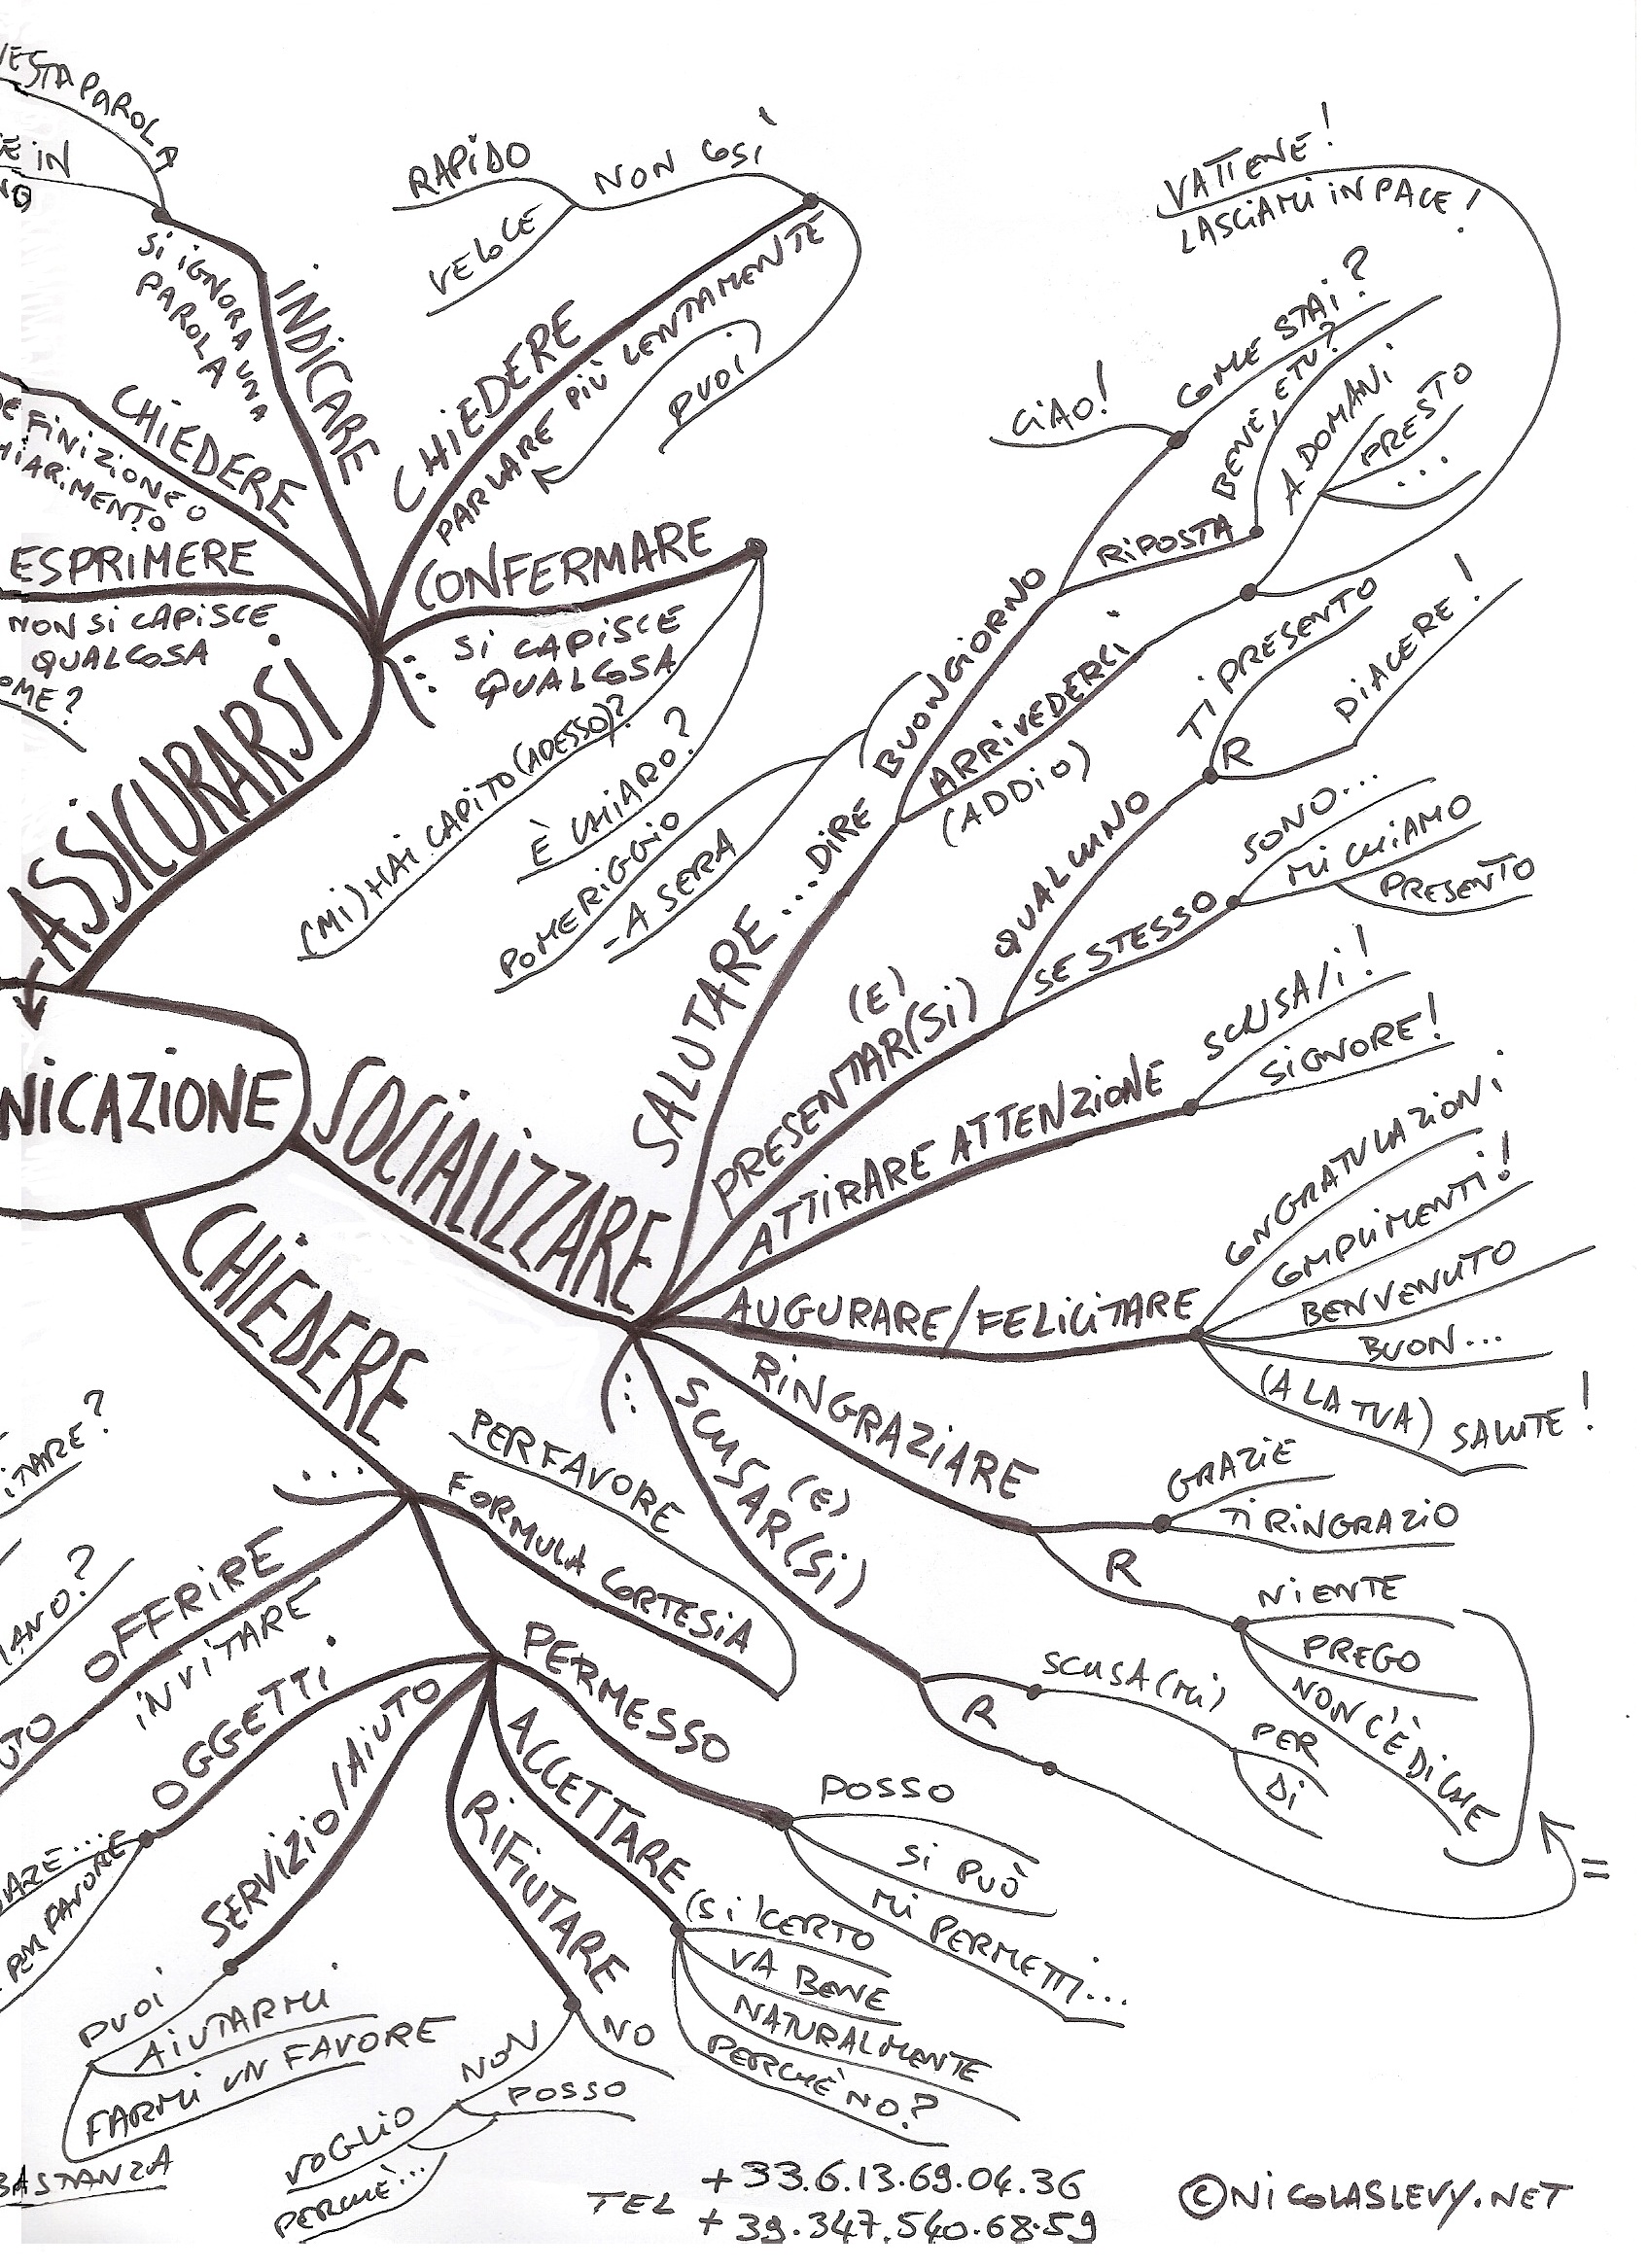 PAROLA
IN
SI IGNORA UNA
PAROLA
INDICARE
CHIEDERE
ESPRIMERE
NON SI CAPISCE
QUALCOSA
RAPIDO
VELOCE
NON COSÌ
CHIEDERE
PARLARE PIÙ LENTAMENTE
PUOI
CONFERMARE
SI CAPISCE
QUALCOSA
(MI) HAI CAPITO (ADESSO)?
È CHIARO?
ASSICURARSI
NICAZIONE
SOCIALIZZARE
SALUTARE... DIRE
BUONGIORNO
POMERIGGIO
-A SERA
CIAO!
COME STAI?
RIPOSTA
BENE, E TU?
ARRIVEDERCI
(ADDIO)
A DOMANI
PRESTO
...
VATTENE!
LASCIAMI IN PACE!
(E)
PRESENTAR(SI)
QUALCUNO
TI PRESENTO
R
PIACERE!
SE STESSO
SONO...
MI CHIAMO
PRESENTO
ATTIRARE ATTENZIONE
SCUSA/I!
SIGNORE!
AUGURARE/FELICITARE
CONGRATULAZIONI
COMPLIMENTI!
BENVENUTO
BUON...
(A LA TUA) SALUTE!
RINGRAZIARE
GRAZIE
TI RINGRAZIO
R
NIENTE
PREGO
NON C'È DI CHE
(E)
SCUSAR(SI)
SCUSA(MI)
PER
DI
R
=
CHIEDERE
...
PER FAVORE
FORMULA CORTESIA
OFFRIRE
INVITARE
OGGETTI
PER FAVORE
SERVIZIO/AIUTO
PUOI
AIUTARMI
FARMI UN FAVORE
PERMESSO
POSSO
SI PUÒ
MI PERMETTI...
ACCETTARE
(SI) CERTO
VA BENE
NATURALMENTE
PERCHÈ NO?
RIFIUTARE
NO
NON
POSSO
VOGLIO
PERCHÈ...
BASTANZA
TEL
+33.6.13.69.04.36
+39.347.540.68.59
©NICOLASLEVY.NET